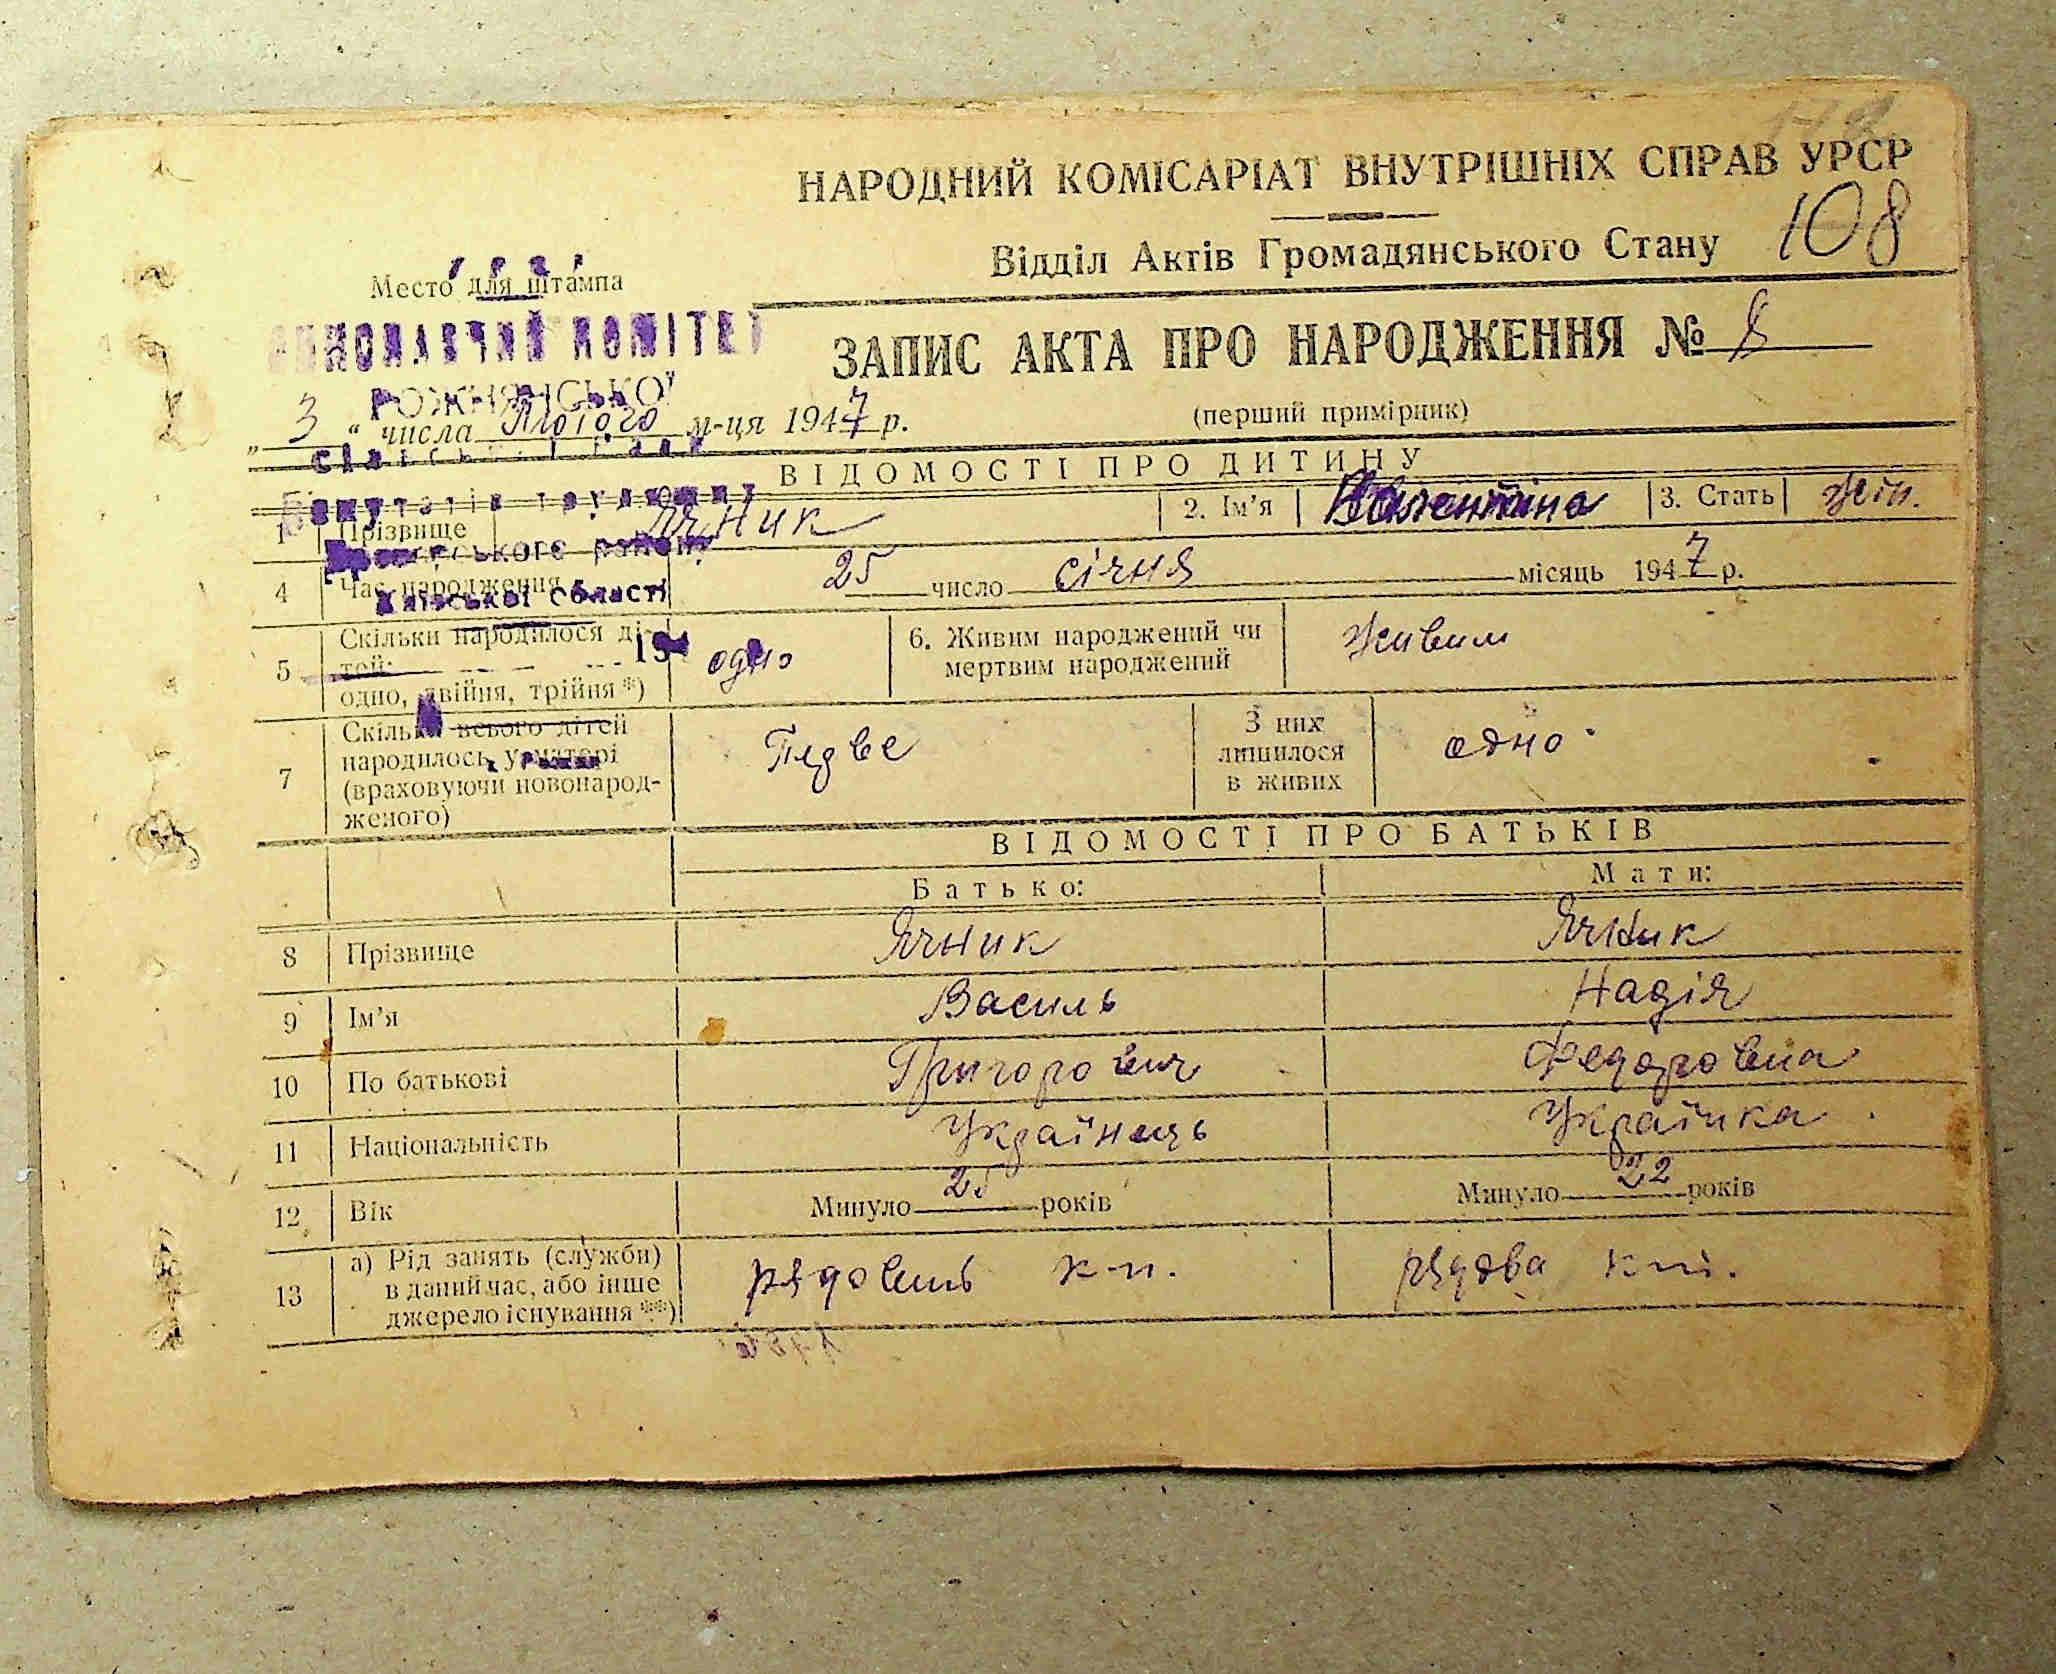 НАРОДНИЙ КОМІСАРІАТ ВНУТРІШНІХ СПРАВ УРСР
Відділ Актів Громадянського Стану 108
Место для штампа
ВИКОНАВЧИЙ КОМІТЕТ
РОЖНЯНСЬКОЇ
сільської ради
Депутатів трудящих
району
Київської області
ЗАПИС АКТА ПРО НАРОДЖЕННЯ № 8
„ 3 “ числа Лютого м-ця 1947 р.
(перший примірник)
ВІДОМОСТІ ПРО ДИТИНУ
1 Прізвище Ячник 2. Ім’я Валентина 3. Стать жін.
4 Час народження 25 число січня місяць 1947 р.
5 Скільки народилося ді-
тей:
одно, двійня, трійня *) одно
6. Живим народжений чи
мертвим народжений Живим
7 Скільки всього дітей
народилось у матері
(враховуючи новонарод-
женого)
З них
лишилося
в живих одно
ВІДОМОСТІ ПРО БАТЬКІВ
Батько: Мати:
8 Прізвище Ячник Ячник
9 Ім’я Василь Надія
10 По батькові Григорович Федоровна
11 Національність Українець Українка
12 Вік Минуло 25 років Минуло 22 років
13 а) Рід занять (служби)
в даний час, або інше
джерело існування **)
рядовий к-п. рядова к-п.